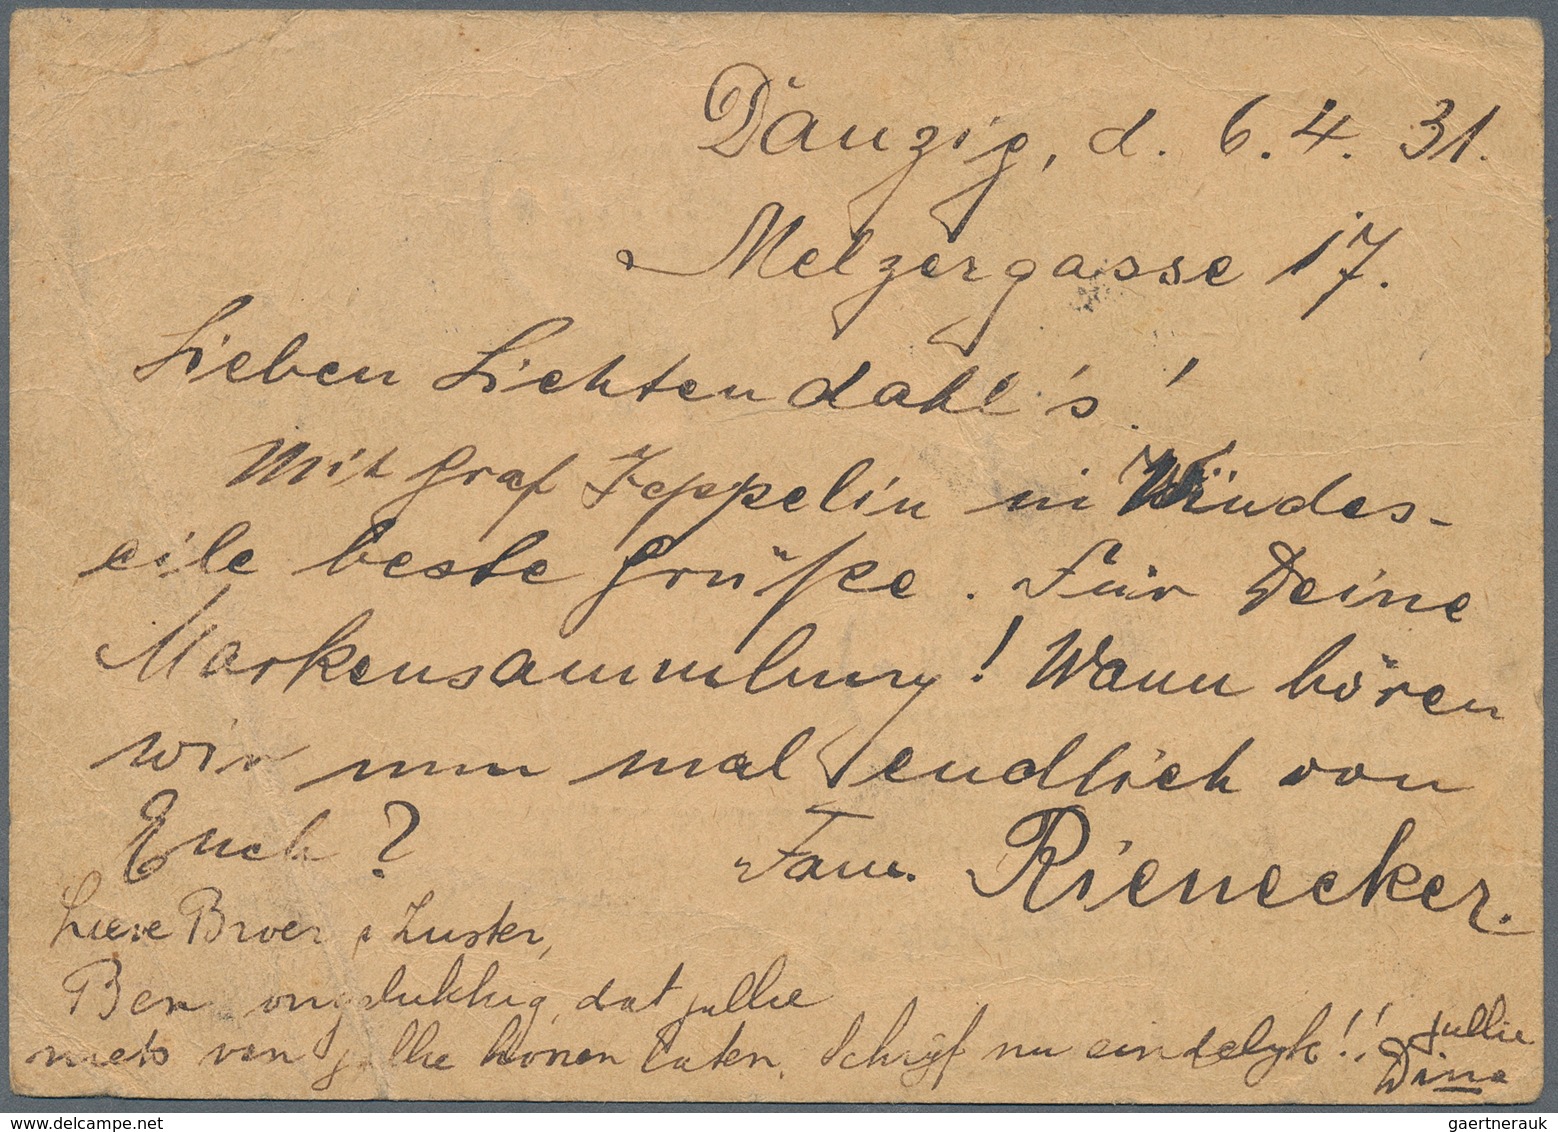 Danzig, d. 6. 4. 31.
Melzergasse 17.
Lieben Lichtendahl's!
Mit Graf Zeppelin in Windes-
eile beste Grüße. Für Deine
Markensammlung! Wann hören
wir nun mal endlich von
Euch?
Fam. Rienecker.
Lieve Broer & Zuster,
Ben ongelukkig, dat jullie
niets van jullie horen laten. Schrijf nu eindelyk!! jullie
Dina
delcampe.net
gaertnerauk